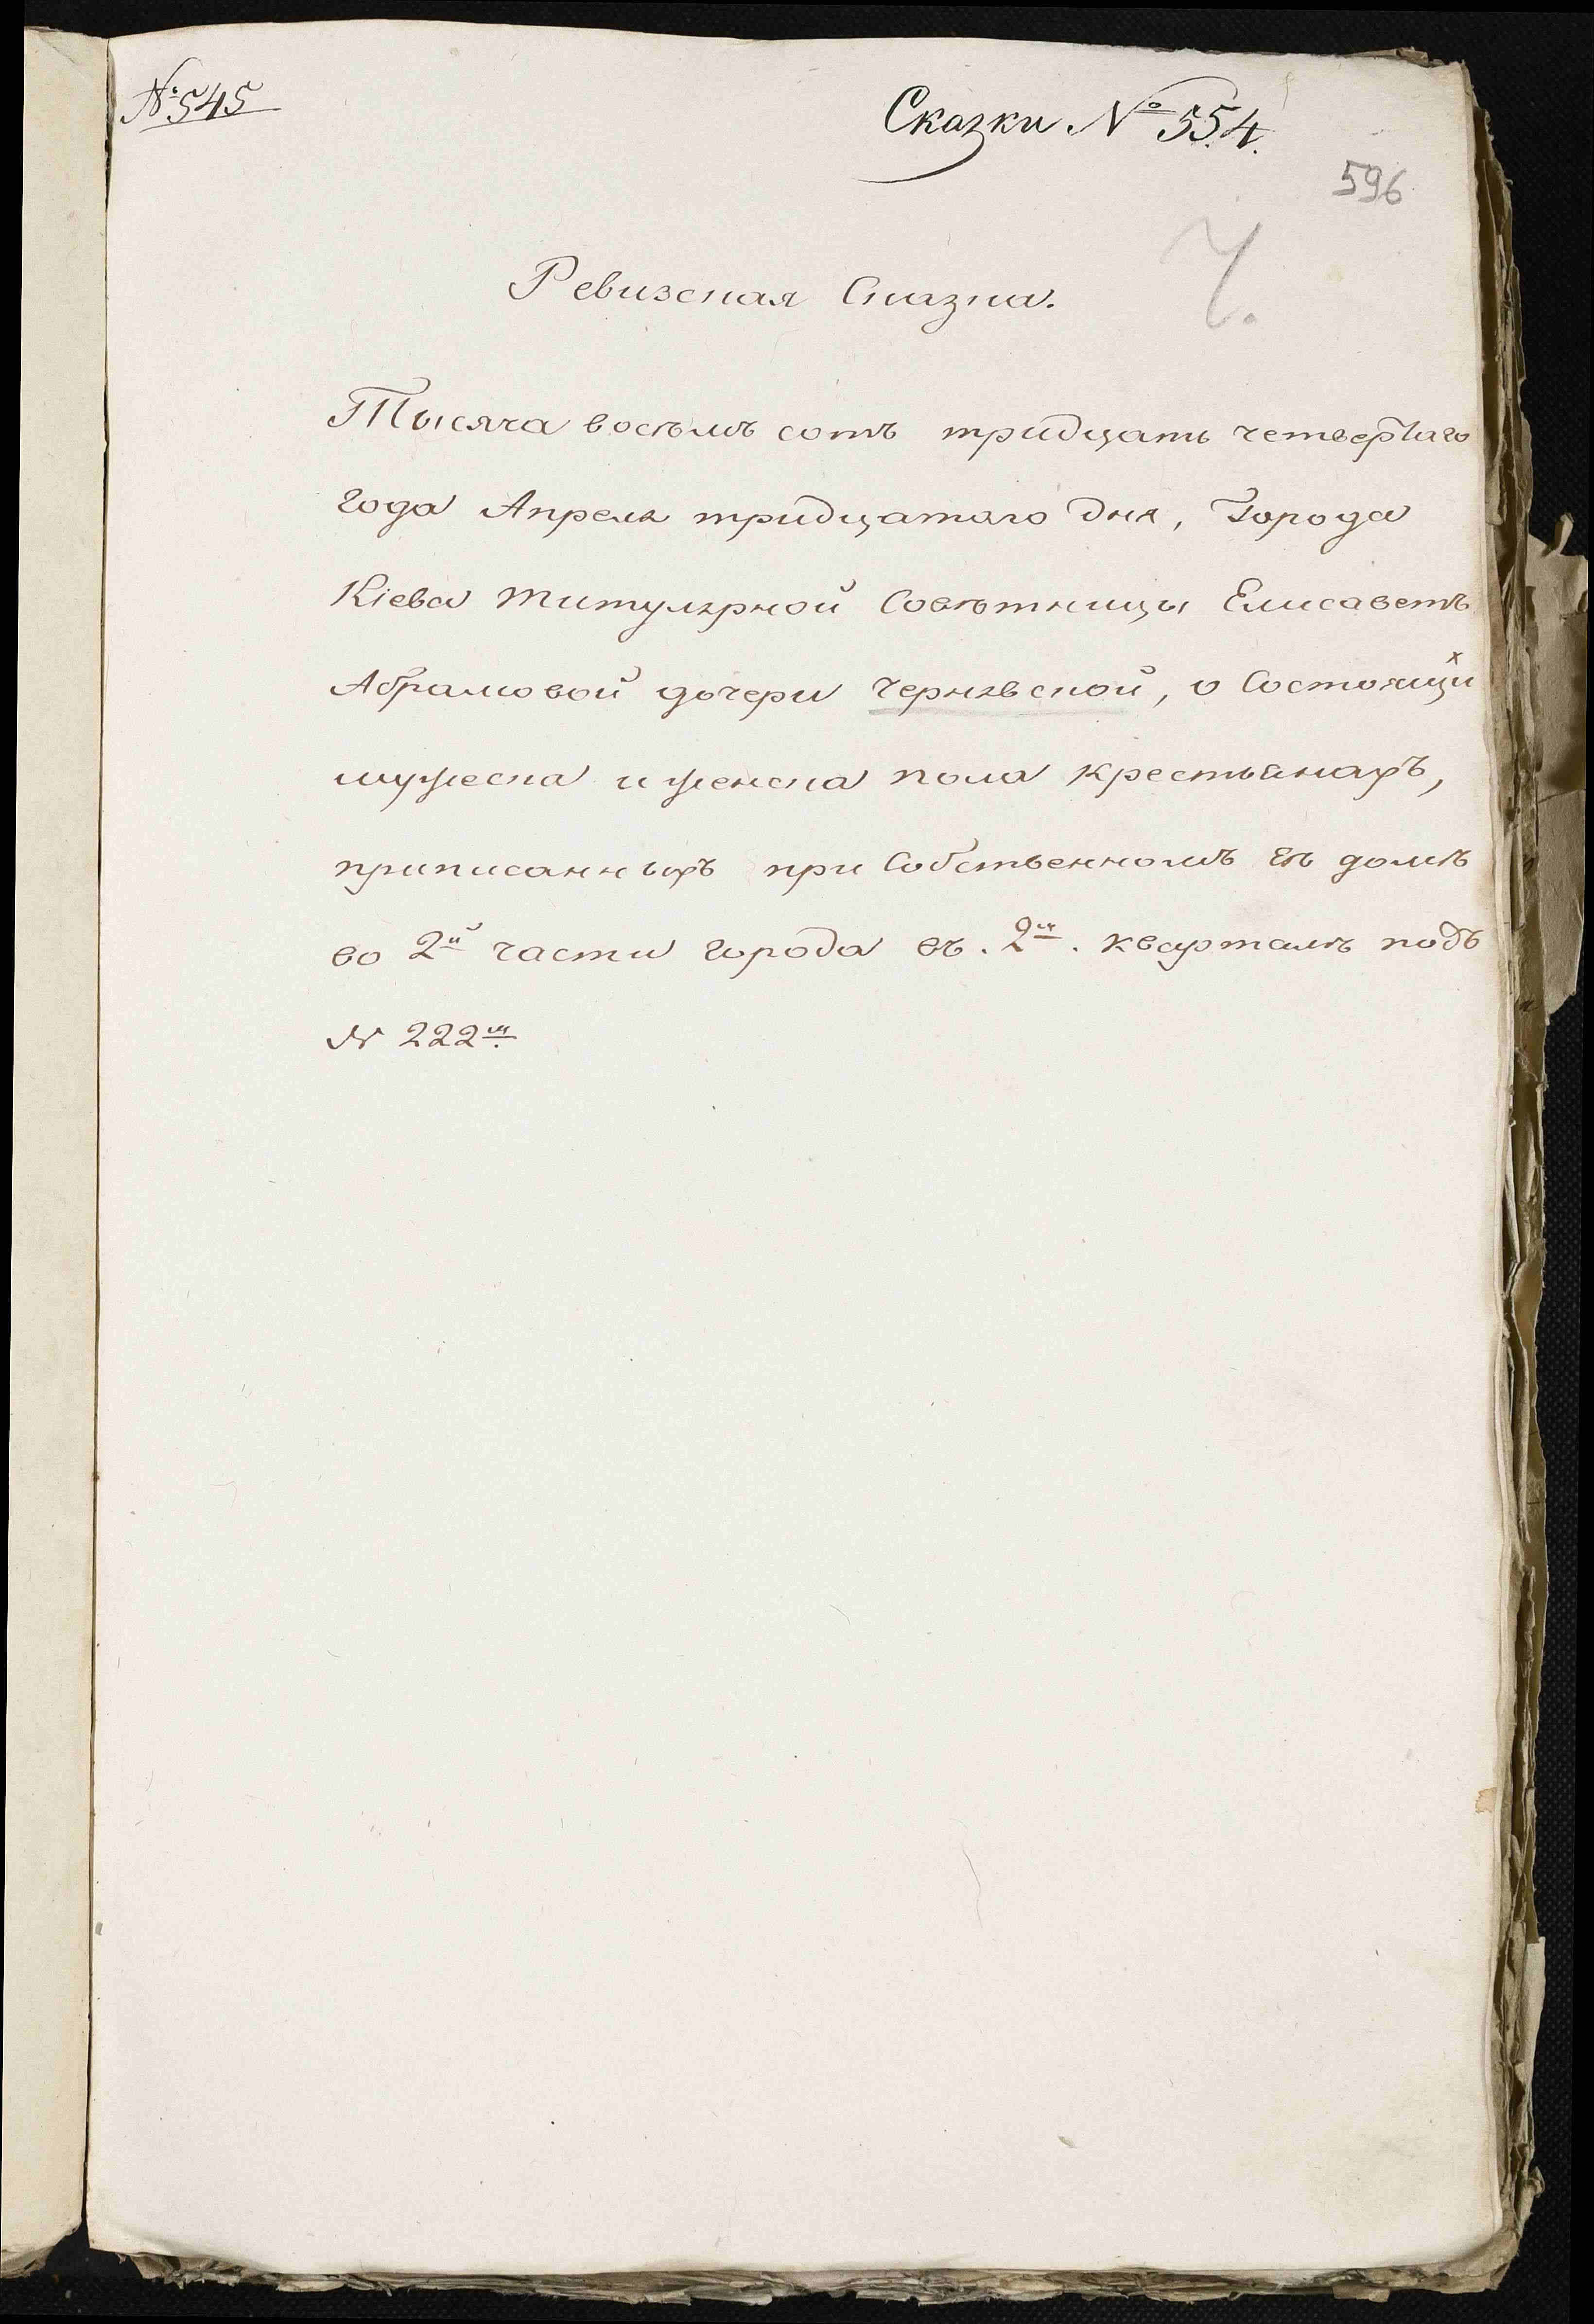 № 545
Сказки № 554.
596
Ч.
Ревизская Сказка.
Тысяча восъмъ сотъ тридцать четвертаго
года Апреля тридцатаго дня, Города
Кіева титулярной Совѣтницы Елисаветъ
Абрамовой дочери Чернявской, о Состоящих
мужеска и женска пола крестьянахъ,
приписанныхъ при Собственномъ Ея домѣ
во 2й части города въ. 2м. кварталѣ подъ
№ 222м